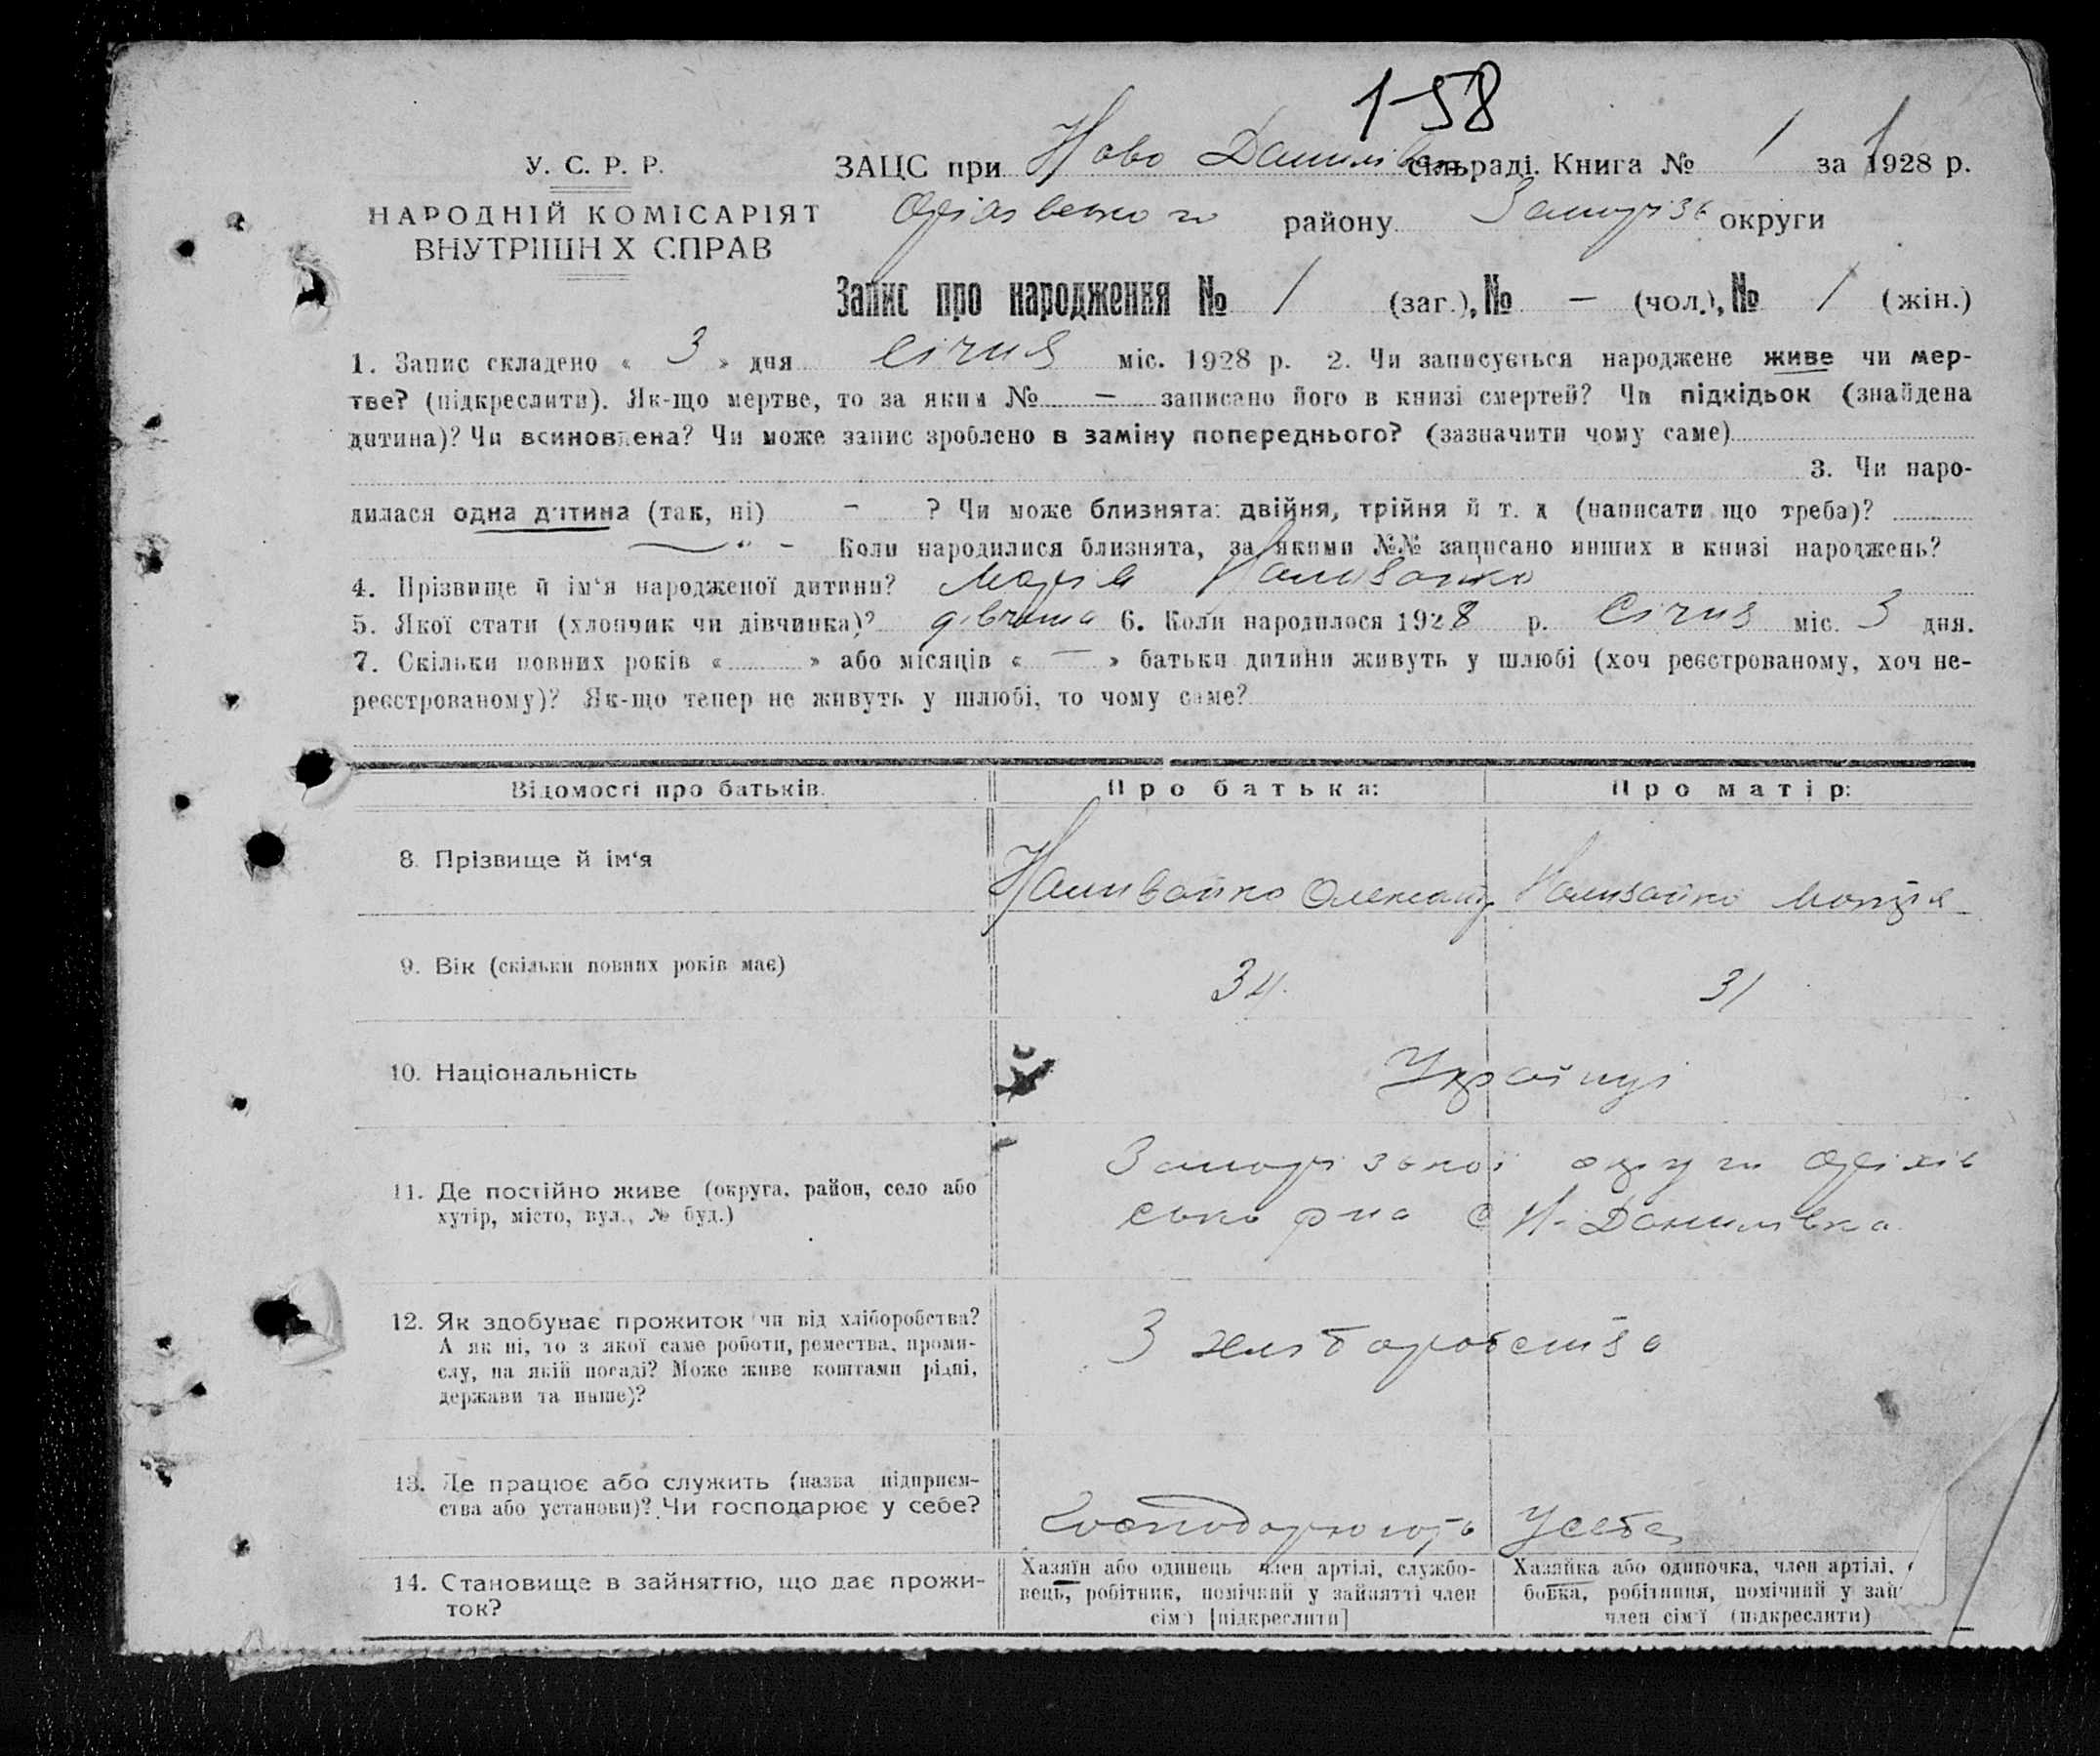 1-58
У. С. Р. Р.
НАРОДНІЙ КОМІСАРІЯТ
ВНУТРІШН Х СПРАВ
ЗАЦС при Ново Данилів сільраді. Книга № 1 за 1928 р.
району Запоріз округи
Запис про народження № 1 (заг.), № — (чол.), № 1 (жін.)
1. Запис складено « 3 » дня січня міс. 1928 р. 2. Чи записується народжене живе чи мер-
тве? (підкреслити). Як-що мертве, то за яким № — записано його в книзі смертей? Чи підкідьок (знайдена
дитина)? Чи всиновлена? Чи може запис зроблено в заміну попереднього? (зазначити чому саме)
3. Чи наро-
дилася одна дитина (так, ні) - ? Чи може близнята: двійня, трійня й т. д (написати що треба)?
„ - Коли народилися близнята, за якими №№ записано инших в книзі народжень?
4. Прізвище й ім‘я народженої дитини? Марія Наливайко
5. Якої стати (хлопчик чи дівчинка)? дівчина 6. Коли народилося 1928 р. Січня міс. 3 дня.
7. Скільки повних років « » або місяців « — » батьки дитини живуть у шлюбі (хоч реєстрованому, хоч не-
реєстрованому)? Як-що тепер не живуть у шлюбі, то чому саме?
Відомості про батьків. Про батька: Про матір:
8. Прізвище й ім‘я Наливайко Олександр Наливайко Марія
9. Вік (скільки повних років має) 34. 31
10. Національність Українці
11. Де постійно живе (округа, район, село або
хутір, місто, вул., № буд.)
Запорізької округи Оріхів
сько рна с Н-Данилівка
12. Як здобуває прожиток чи від хліборобства?
А як ні, то з якої саме роботи, ремества, проми-
слу, на якій посаді? Може живе коштами рідні,
держави та инше)?
З хліборобства
13. Де працює або служить (назва підприєм-
ства або установи)? Чи господарює у себе?
Господарюють Усебе
14. Становище в зайняттю, що дає прожи-
ток?
Хазяїн або одинець член артілі, службо-
вець, робітник, помічний у зайнятті член
сім‘ї [підкреслити]
Хазяйка або одиночка, член артілі,
бовка, робітниця, помічний у зай
член сім‘ї (підкреслити)